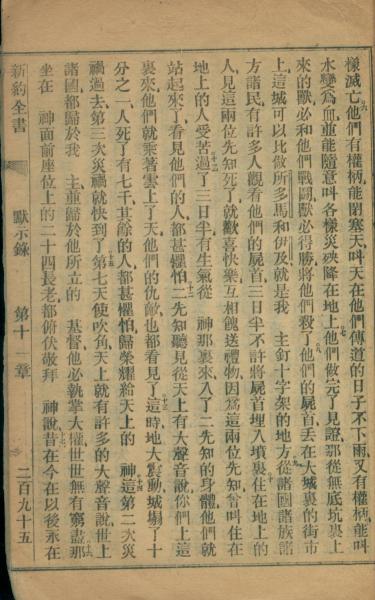 樣滅亡他們有權柄能閉塞天叫天在他們傳道的日子不下雨又有權柄能叫
水變為血並能隨意叫各樣災殃降在地上他們做完了見證那從無底坑裏上
來的獸必和他們戰鬬獸必得勝將他們殺了他們的屍首丟在大城裏的街市
上這城可以比做所多馬和伊及就是我 主釘十字架的地方從諸國諸族諸
方諸民有許多人觀看他們的屍首三日半不許將屍首埋入墳裏住在地上的
人見這兩位先知死了就歡喜快樂互相餽送禮物因為這兩位先知曾叫住在
地上的人受苦過了三日半有生氣從 神那裏來入了二先知的身體他們就
站起來了看見他們的人都甚懼怕二先知聽見從天上有大聲音說你們上這
裏來他們就乘著雲上了天他們的仇敵也都看見了這時地大震動城塌了十
分之一人死了有七千其餘的人都甚懼怕歸榮耀給天上的 神這第二次災
禍過去第三次災禍就快到了第七天使吹角天上就有許多的大聲音說世上
諸國都歸於我 主並歸於他所立的 基督他必執掌大權世世無有窮盡那
坐在 神面前座位上的二十四長老都俯伏敬拜 神說昔在今在以後永在
新約全書 默示錄 第十一章 二百九十五